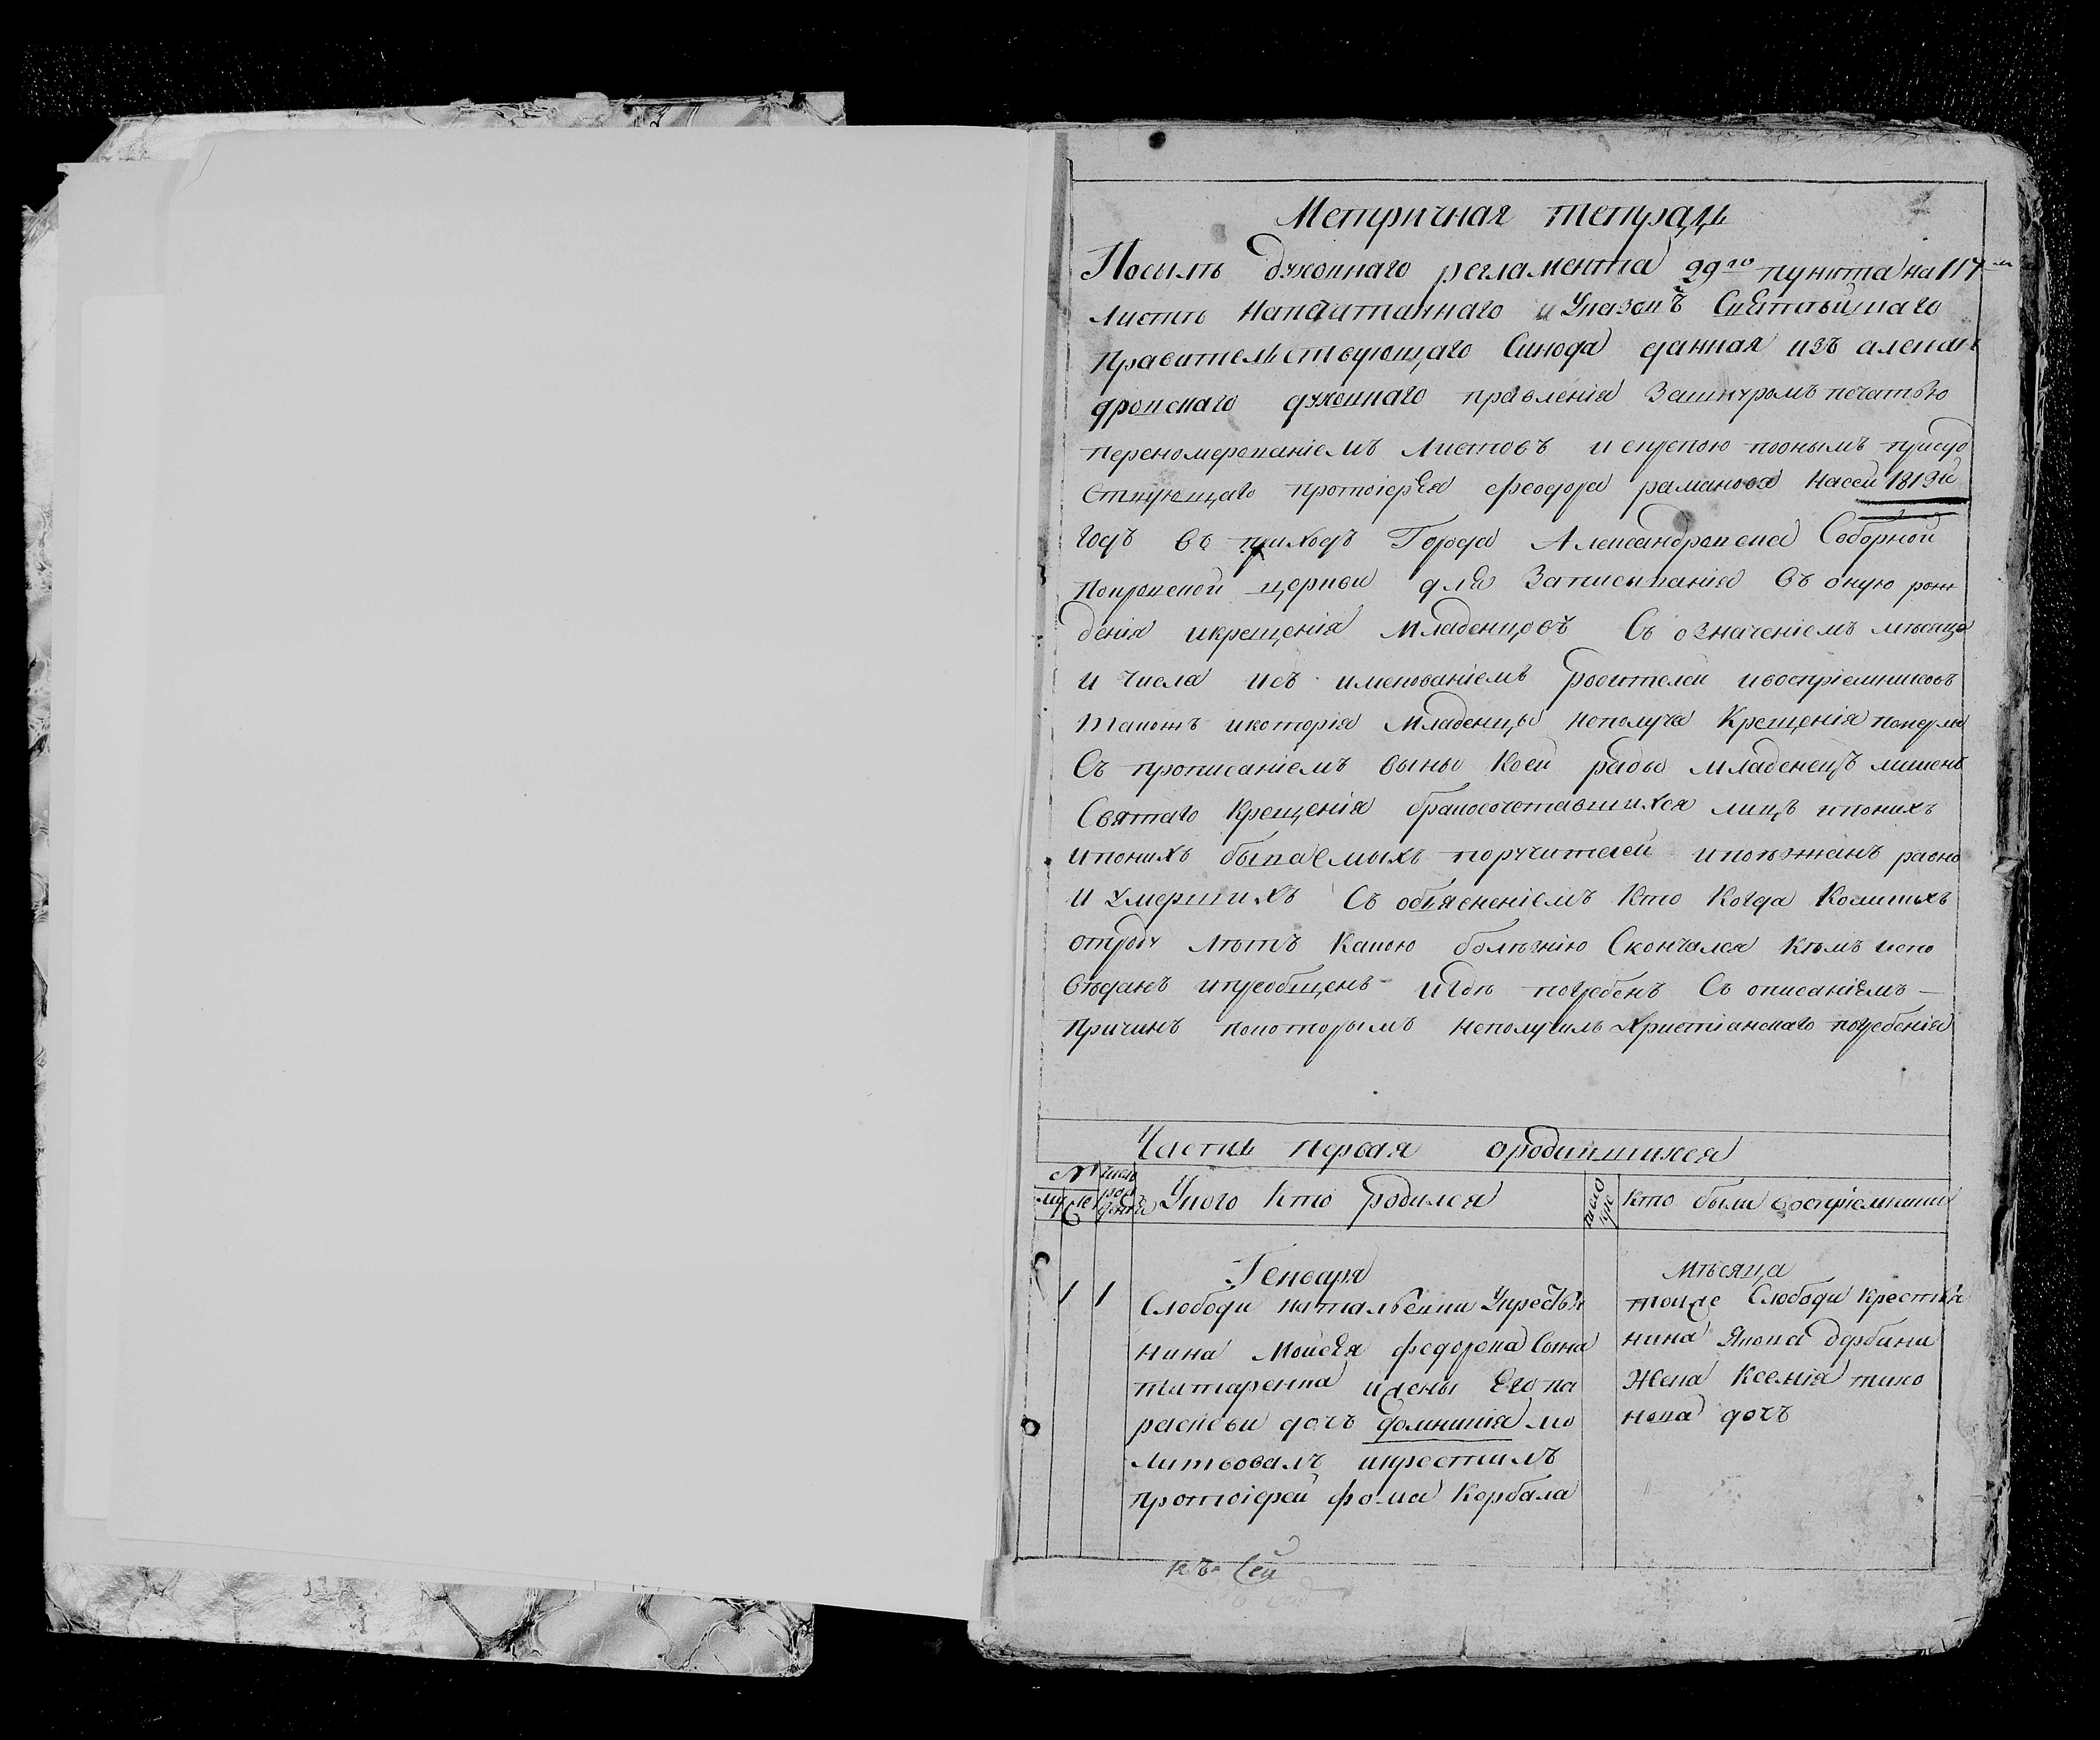 Метричная тетрадь
Посылѣ духовнаго регламента 29го пункта на 117м
листѣ напечатаннаго и Указовъ Святѣйшаго
Правительствующаго Синода данная изъ алексан
дровскаго духовнаго правленія Зашнуромъ печатью
переномерованіемъ Листовъ и скрепою поонымъ присуд
ствующаго протоіерея феодора раманова Насей 1819й
годъ въ приходъ Города Александровска Соборной
Покровской церкви для Записыванія въ оную рож
денія икрещенія Младенцовъ Съ означеніемъ мѣсяца
и числа исъ именованіемъ родителей ивоспріемниковъ
такожъ икоторія Младенцы неполуча Крещенія померли
Съ прописаніемъ выны коей рады младенецъ лишенъ
Святаго Крещенія бракосочетавшихся лицъ ипонихъ
ипонихъ бываемыхъ поручителей ипоезжанъ равно
и умершихъ Съ объясненіемъ Кто Когда Колишхъ
отроду Лѣтъ Какою болѣзнію Скончался Кѣмъ испо
вѣданъ ипреобщенъ игдѣ погребенъ Съ описаніемъ
Причинъ покоторымъ неполучилъ Христіанскаго погребенія
Часть Первая ородившихся
№ число
му же рож
денія Укого Кто родился Кто были воспріемники
Генваря Мѣсяца
1 1 Слободи наталѣвки Укрестья
нина Моисея федорова Сына
титаренка ижены Его па
раскевы дочъ домникія мо
литвовалъ икрестилъ
протоіерей фома Корбала
тойже Слободи Крестья
нина Якова дорбини
Жена Ксенія тихо
нова дочъ
къ Сей